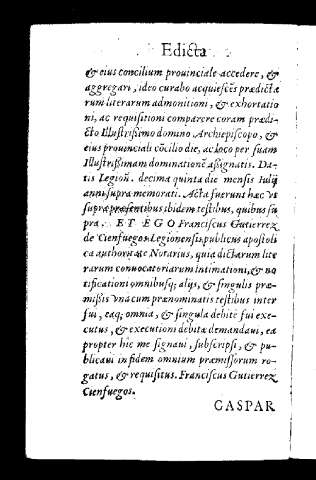 Edicta
& eius concilium prouinciale accedere, &
aggregari, ideo curabo acquiescẽs prædictæ
rum literarum admonitioni, & exhortatio
ni, ac requisitioni comparere coram prædi-
cto Illustrissimo domino Archiepiscopo, &
eius prouinciali cõcilio die, ac loco per suam
Illustrissimam dominationẽ assignatis. Da-
tis Legioñ. decima quinta die mensis Iulij
anni supra memorati. Acta fuerunt hæc vt
supra præsentibus ibidem testibus, quibus su
pra. ET EGO Franciscus Gutierrez
de Cienfuegos Legionensis, publicus apostoli
ca authoritate Notarius, quia dictarum lite
rarum conuocatoriarum intimationi, & no
tificationi omnibusq; alijs, & singulis præ-
missis vna cum prænominatis testibus inter
fui, eaq; omnia, & singula debitè fui exe-
cutus, & executioni debitæ demandaui, ea
propter hic me signaui, subscripsi, & pu-
blicaui in fidem omnium præmissorum ro-
gatus, & requisitus. Franciscus Gutierrez
Cienfuegos.
GASPAR